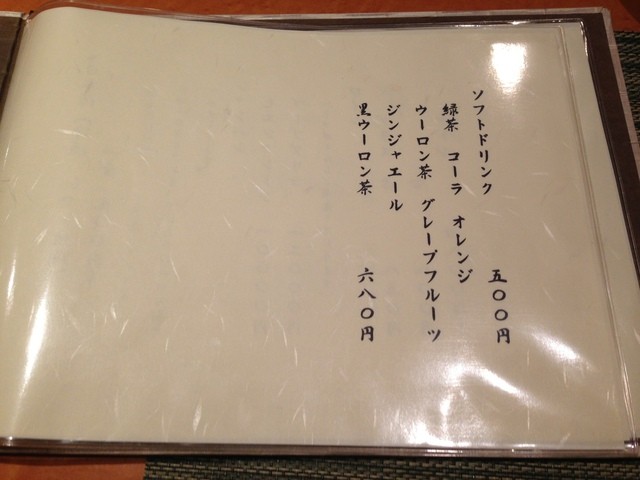 ソフトドリンク 五〇〇円
緑茶 コーラ オレンジ
ウーロン茶 グレープフルーツ
ジンジャエール
黒ウーロン茶 六八〇円